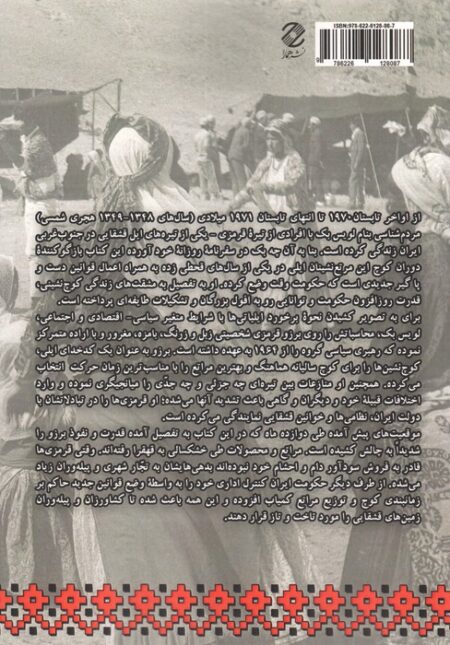 ISBN: 978-622-6126-08-7
9 786226 126087
نشر همارا
از اواخر تابستان ۱۹۷۰ تا انتهای تابستان ۱۹۷۱ میلادی (سال‌های ۱۳۲۸-۱۳۲۹ هجری شمسی)
مردم‌شناسی بنام لویس بک با افرادی از تیرهٔ قرمزی - یکی از تیره‌های ایل قشقایی در جنوب غربی
ایران زندگی کرده است. بنا به آن چه بک در سفرنامهٔ روزانهٔ خود آورده این کتاب بازگوکنندهٔ
دوران کوچ این مرتع‌نشینان ایلی در یکی از سال‌های قحطی زده به همراه اعمال قوانین دست و
پا گیر جدیدی است که حکومت وقت وضع کرده. او به تفصیل به مشقت‌های زندگی کوچ‌نشینی،
قدرت روزافزون حکومت و توانایی رو به افول بزرگان و تشکیلات طایفه‌ای پرداخته است.
برای به تصویر کشیدن نحوهٔ برخورد ایلیاتی‌ها با شرایط متغیر سیاسی- اقتصادی و اجتماعی،
لویس بک، محاسباتش را روی برزو قرمزی شخصیتی زبل و زرنگ، بامزه، مغرور و با اراده متمرکز
نموده که رهبری سیاسی گروه را از ۱۹۶۲ به عهده داشته است. برزو به عنوان یک کدخدای ایلی،
کوچ‌نشین‌ها را برای کوچ سالیانه هماهنگ و بهترین مراتع را با مناسب‌ترین زمان حرکت انتخاب
می‌کرده. همچنین او منازعات بین تیره‌ای چه جزئی و چه جدّی را میانجیگری نموده و وارد
اختلافات قبیلهٔ خود و دیگران و گاهی باعث تشدید آنها می‌شده؛ او قرمزی‌ها را در تبادلاتشان با
دولت ایران، نظامی‌ها و خوانین قشقایی نمایندگی می‌کرده است.
موقعیت‌های پیش آمده طی دوازده ماه که در این کتاب به تفصیل آمده قدرت و نفوذ برزو را
شدیداً به چالش کشیده است. مراتع و محصولات طی خشکسالی به قهقرا رفته‌اند. وقتی قرمزی‌ها
قادر به فروش سودآور دام و احشام خود نبوده‌اند بدهی‌هایشان به تجّار شهری و پیله‌وران زیاد
می‌شده. از طرف دیگر حکومت ایران کنترل اداری خود را به واسطهٔ وضع قوانین جدید حاکم بر
زمانبندی کوچ و توزیع مراتع کمیاب افزوده و این همه باعث شده تا کشاورزان و پیله‌وران
زمین‌های قشقایی را مورد تاخت و تاز قرار دهند.